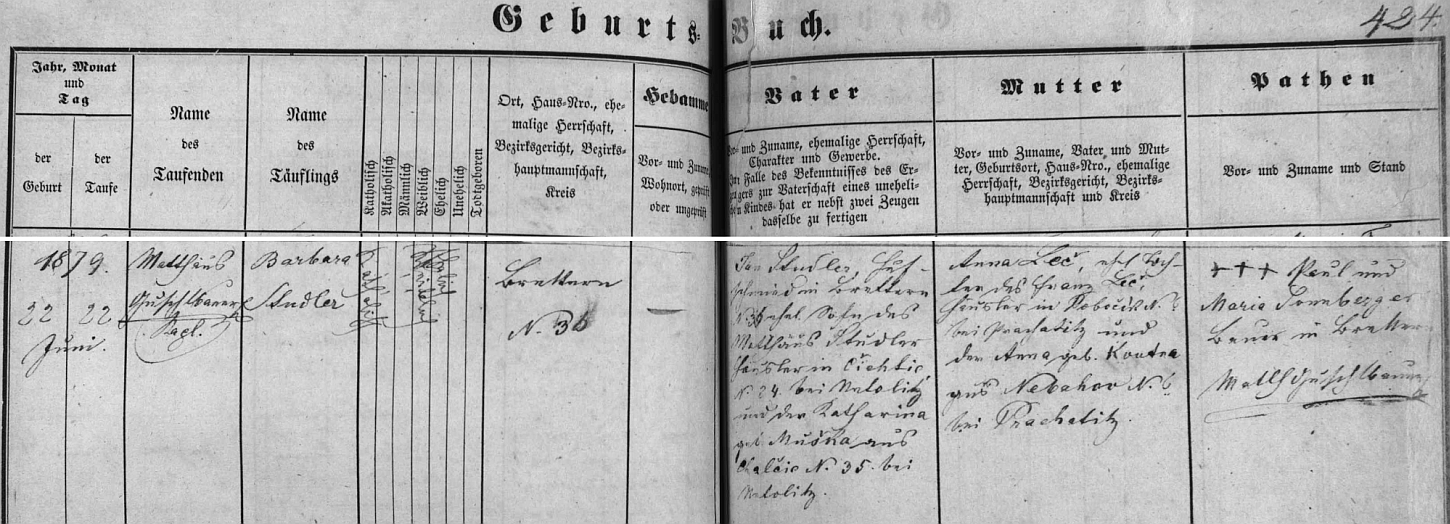 Geburts-Buch.
424.
Jahr, Monat
und
Tag
der
Geburt
der
Taufe
Name
des
Taufenden
Name
des
Täuflings
Katholisch
Akatholisch
Männlich
Weiblich
Ehelich
Unehelich
Todtgeboren
Ort, Haus-Nro., ehe-
malige Herrschaft,
Bezirksgericht, Bezirks-
hauptmannschaft,
Kreis
Hebamme
Vor- und Zuname,
Wohnort, geprüft
oder ungeprüft
Vater
Vor- und Zuname, ehemalige Herrschaft,
Charakter und Gewerbe.
Im Falle des Bekenntnisses des Er-
zeugers zur Vaterschaft eines uneheli-
chen Kindes hat er nebst zwei Zeugen
dasselbe zu fertigen
Mutter
Vor- und Zuname, Vater und Mut-
ter, Geburtsort, Haus-Nro., ehemalige
Herrschaft, Bezirksgericht, Bezirks-
hauptmannschaft und Kreis
Pathen
Vor- und Zuname und Stand
1879.
22 22
Juni.
Matthäus
Guschlbauer
Kapl.
Barbara
Studler
Katholisch
Weiblich
Ehelich
Brettern
N. 36
Jan Studler, Huf-
schmied in Brettern
N. 36 ehel. Sohn des
Matthäus Studler
Häusler in Čichtic
N. 24 bei Netolitz
und der Katharina
geb. Muška aus
N. 35. bei
Netolitz.
Anna Leč, ehel. Toch-
ter des Franz Leč,
Häusler in N.
bei Prachatitz und
der Anna geb. Koutna
aus Nebahov N. 6
bei Prachatitz.
+++ Paul und
Maria Sonnberger
Bauer in Brettern
Matth Guschlbauer